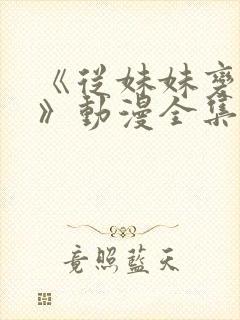 《從妹妹
》動漫全集
竟照藍天